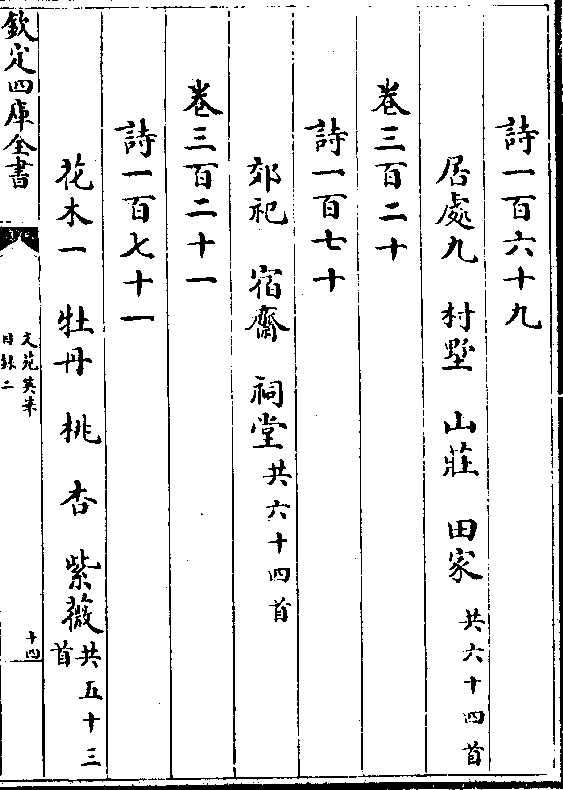 詩一百六十九
居處九 村墅 山莊 田家 共六十四首
卷三百二十
詩一百七十
郊祀 宿齋 祠堂 共六十四首
卷三百二十一
詩一百七十一
花木一 牡丹 桃 杏 紫薇 共五十三首
欽定四庫全書
文苑英華
目錄二
十四